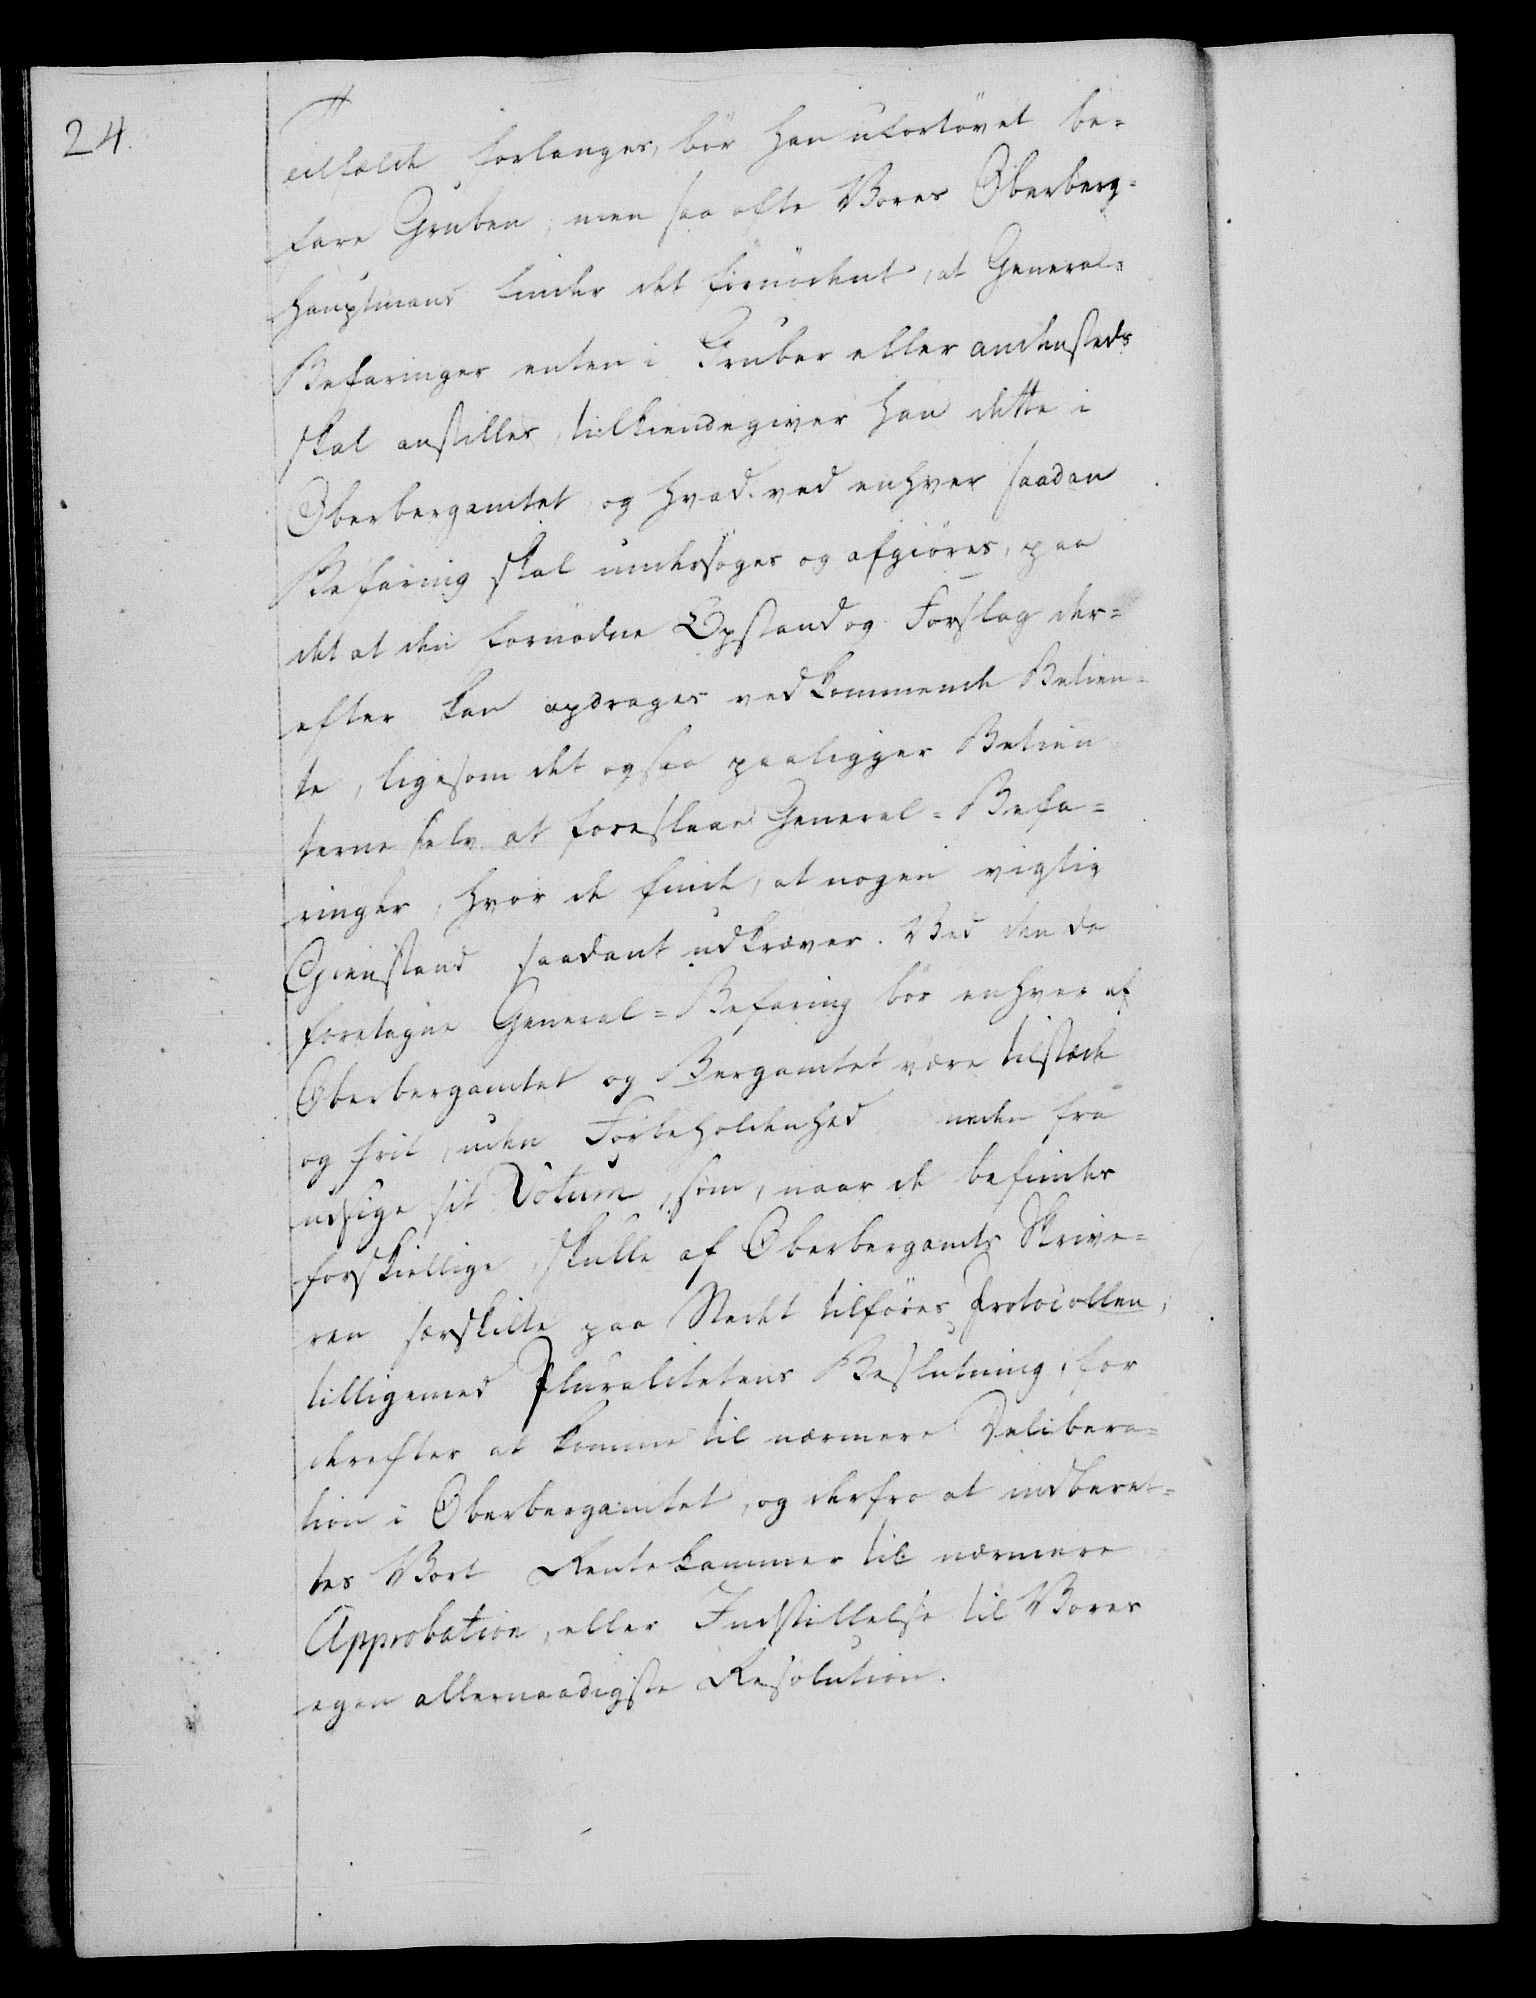 24.
tilfælde forlanges, bör han ufortövet be=
fare Gruben, men saa ofte Vores Oberberg=
hauptmand finder det fornödent, at General=
Befaringer enten i Gruber eller andensteds
skal anstilles, tilkiendegiver han dette i
Oberbergamtet, og hvad ved enhver saadan
Befaring skal undersöges og afgiöres, paa
det at den fornödne Opstand og Forslag der=
efter kan opdrages vedkommende Betien=
te, ligesom det ogsaa paaligger Betien
terne selv at foreslaae General=Befa=
ringer, hvor de finde, at nogen vigtig
Gienstand saadant udkræver. Ved den da
foretagne General=Befaring bör enhver af
Oberbergamtet og Bergamtet være tilstæde
og frit, uden Forbeholdenhed neden fra
udsige sit Votum, som, naar de befindes
forskiellige, skulle af Oberbergamts Skrive=
ren særskilte paa Stedet tilföres Protocollen,
tilligemed Pluralitetens Beslutning, for
derefter at komme til nærmere Delibera=
tion i Oberbergamtet, og derfra at indberet=
tes Vort Rentekammer til nærmere
Approbation, eller Indstillelse til Vores
egen allernaadigste Resolution.